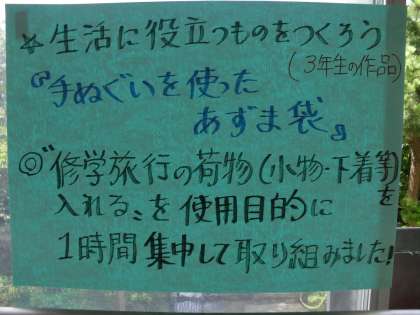 ☆生活に役立つものをつくろう
(3年生の作品)
『手ぬぐいを使った
あずま袋』
◎"修学旅行の荷物(小物・下着等)を
入れる〟を使用目的に
1時間集中して取り組みました!